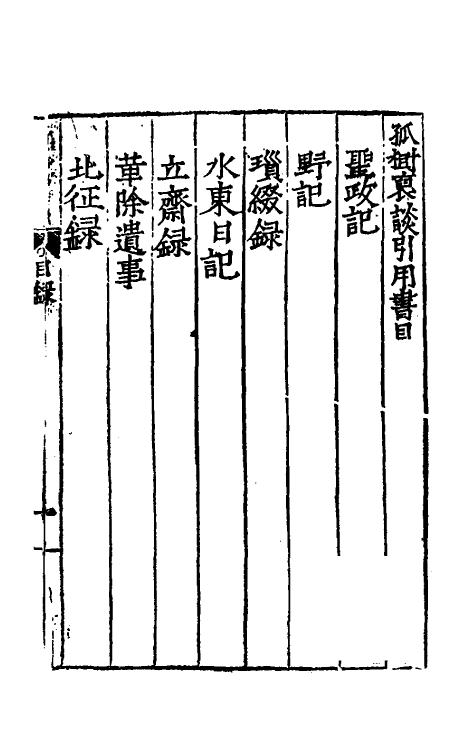 孤樹裒談引用書目
聖政記
野記
瑣綴録
水東日記
立齋録
革除遺事
北征録
目録